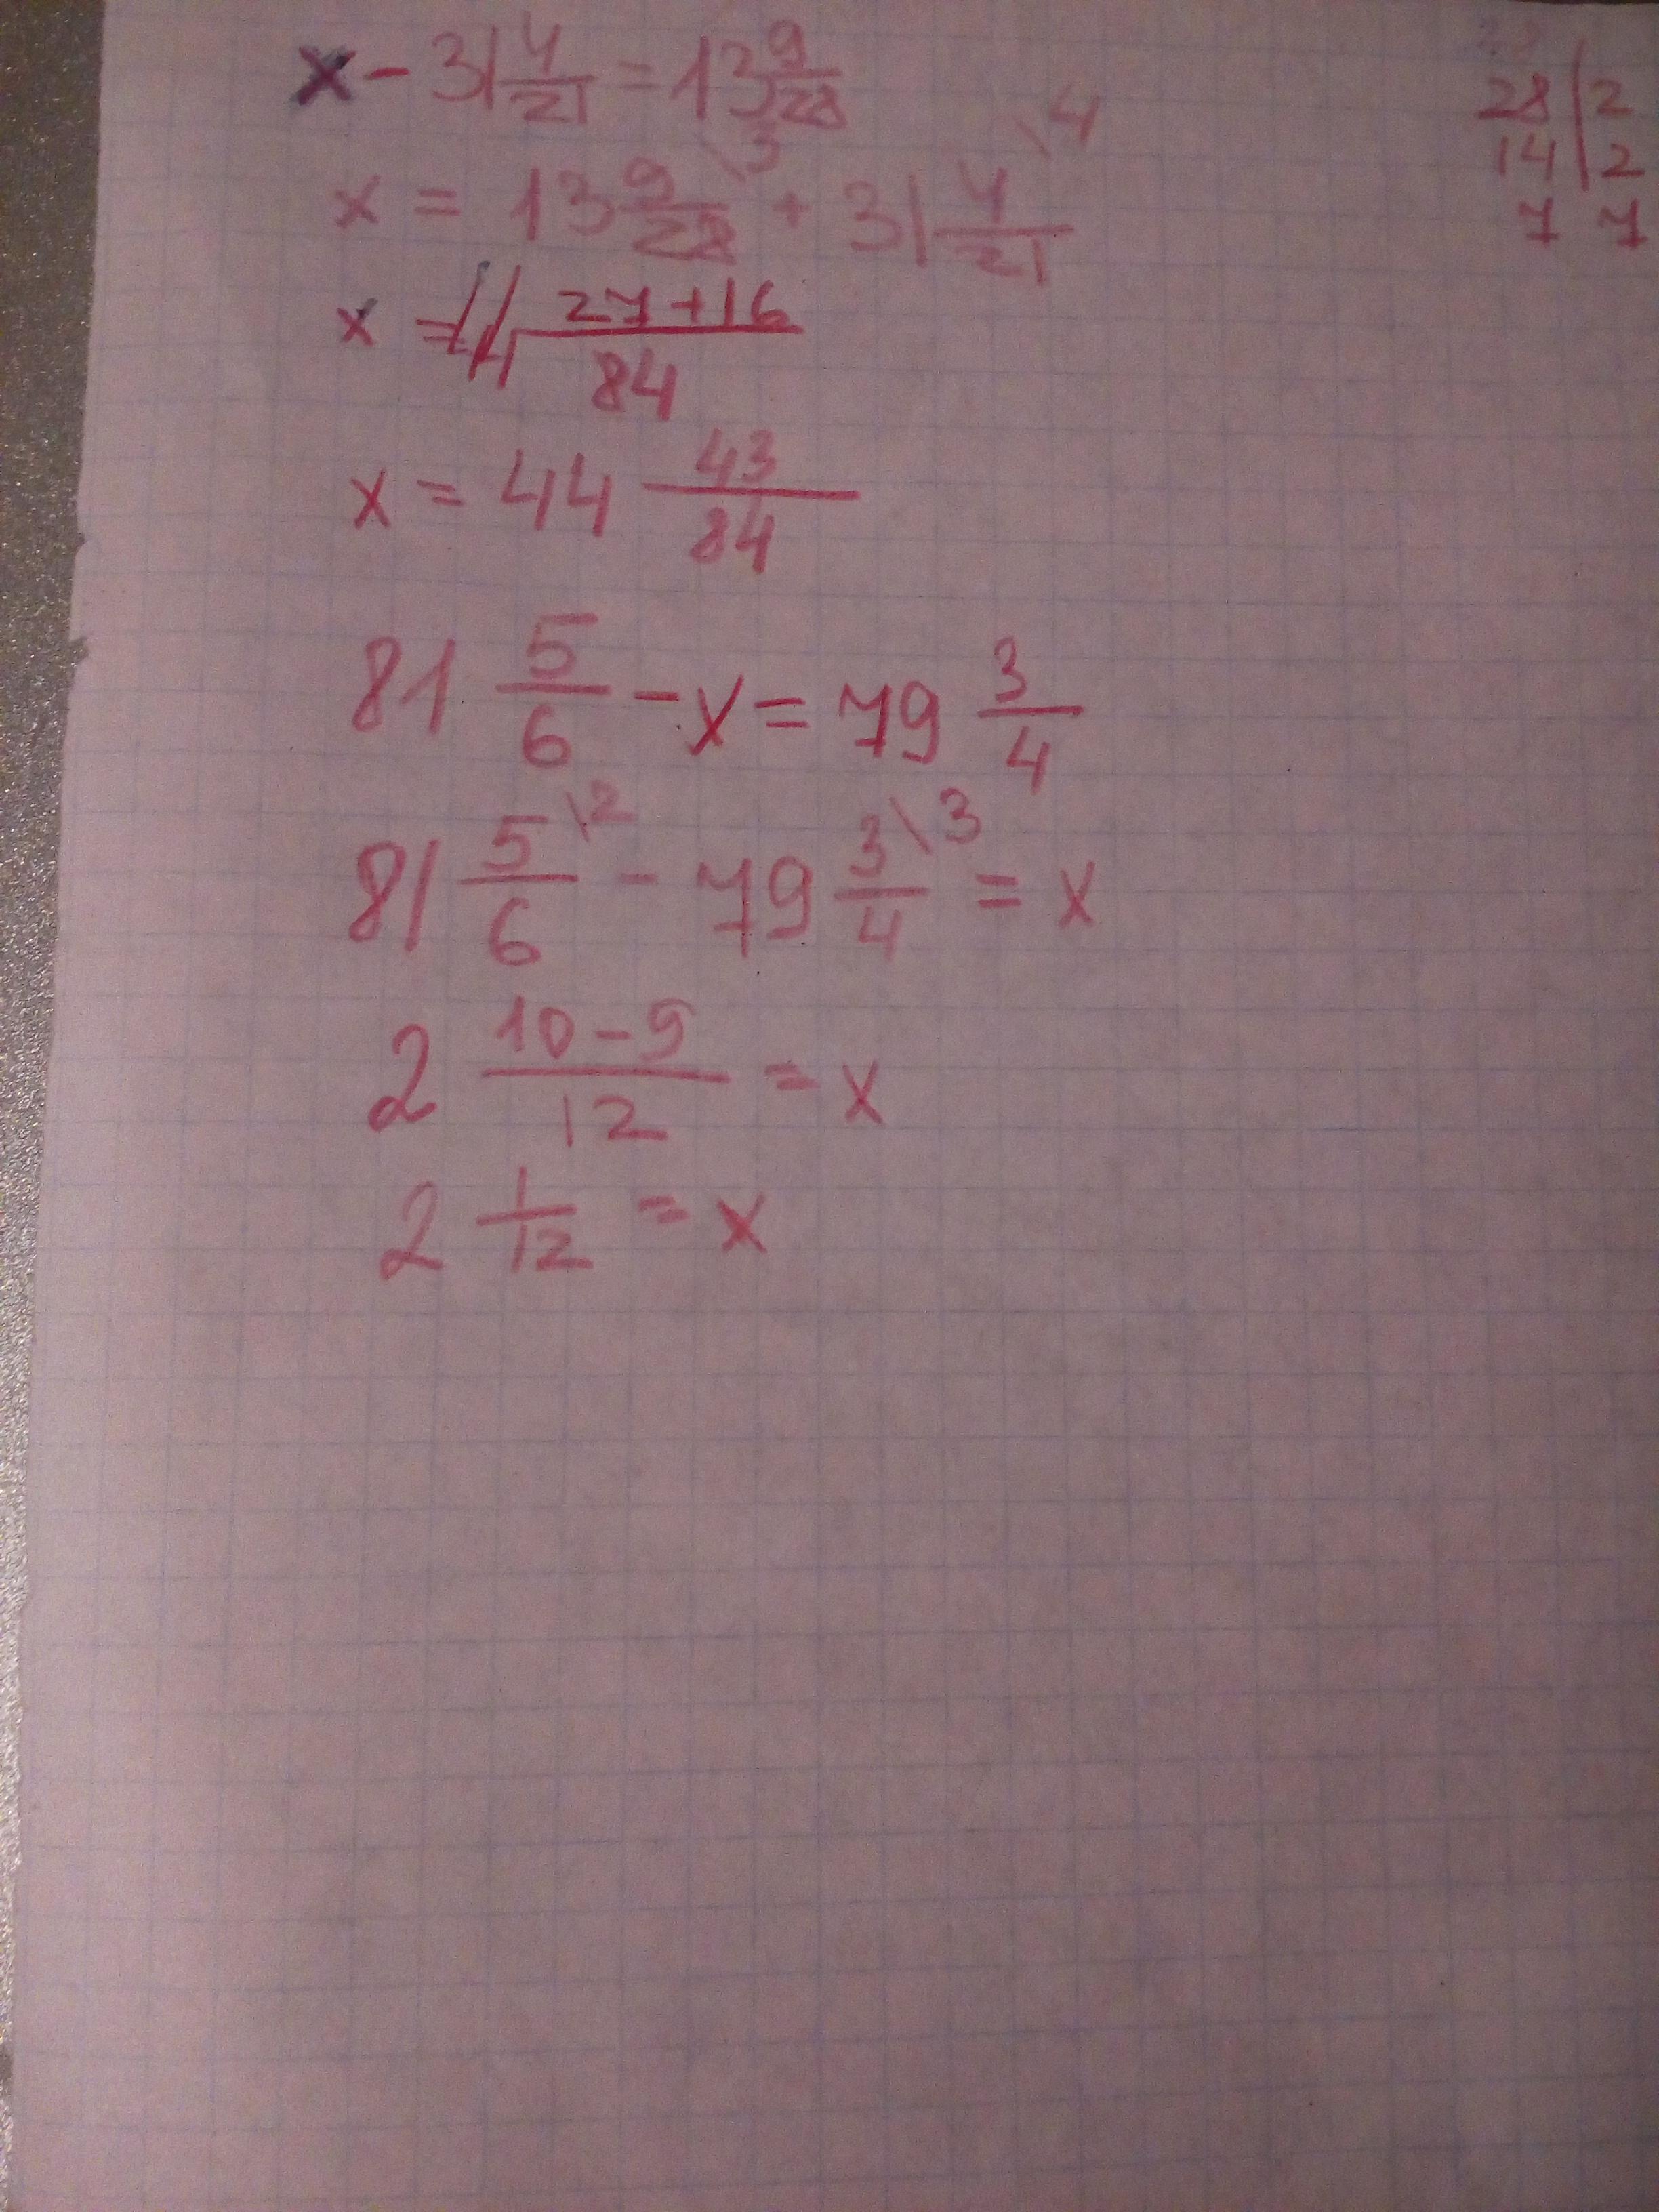 x - 31 4/21 = 13 9/28
x = 13 9/28 \3 + 31 4/21 \4
x = 44 27+16/84
x = 44 43/84
81 5/6 - x = 79 3/4
81 5/6 \2 - 79 3/4 \3 = x
2 10-9/12 = x
2 1/12 = x
28 | 2
14 | 2
7 7